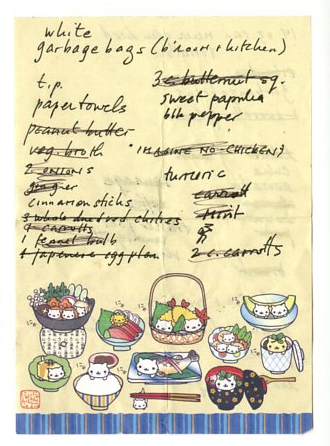 white
garbage bags (b'room + kitchen)
t.p.
paper towels
peanut butter
veg. broth
2 onions
ginger
cinnamon sticks
3 whole dried red chilies
4 carrots
1 fennel bulb
4 Japanese eggplan
3 c butternut sq.
sweet paprika
blk pepper
* IMAGINE NO-CHICKEN
turmeric
carrots
fruit
2 c. carrots